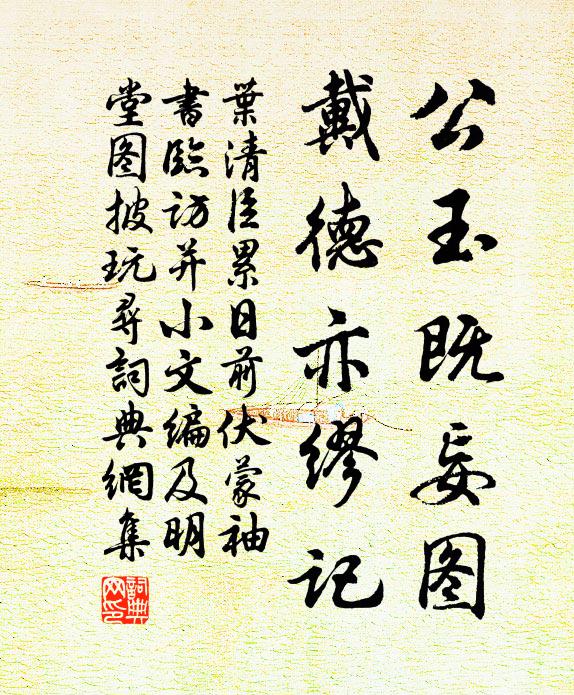 公玉既妄图
戴德亦繆记
葉清臣累日前伏蒙袖
書臨访并小文编及明
堂图披玩尋詞典網集
詞典網印